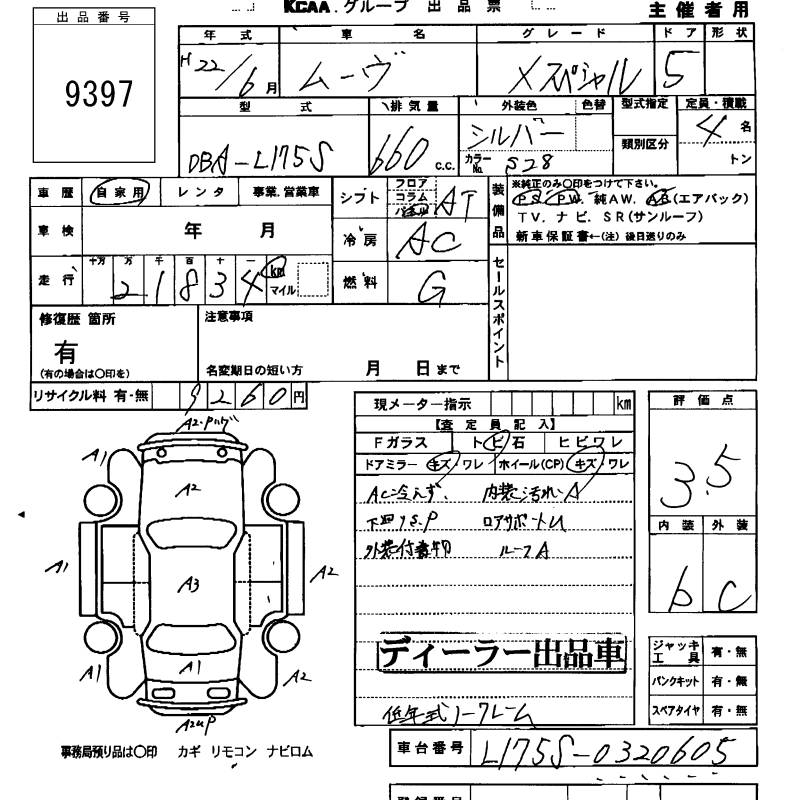 KCAA.グループ 出品票 主催者用
出品番号
9397
年式 車名 グレード ドア 形状
H22/6月 ムーヴ Xスペシャル 5
型式 排気量 外装色 色替 型式指定 定員・積載
DBA-L175S 660 c.c. シルバー カラーNo. S28 類別区分 4名 トン
車歴 自家用 レンタ 事業.営業車
シフト フロア コラム パネル AT
装備品 ※純正のみ○印をつけて下さい。
PS. PW. 純AW. AB(エアバック)
TV. ナビ. SR(サンルーフ)
新車保証書←(注)後日送りのみ
車検 年 月
冷房 AC
走行 十万 万 千 百 十 一
21834 km マイル
燃料 G
セールスポイント
修復歴 箇所 注意事項
有
(有の場合は○印を) 名変期日の短い方 月 日まで
リサイクル料 有・無 9260円
現メーター指示 km
【査定員記入】
Fガラス トビ石 ヒビワレ
ドアミラー キズ・ワレ ホイール(CP) キズ・ワレ
AC冷えず. 内装汚れ.A
下回りS.P ロアサポートU
外装付着物 ルーフA
ディーラー出品車
低年式ノークレーム
評価点
3.5
内装 外装
b C
ジャッキ工具 有・無
パンクキット 有・無
スペアタイヤ 有・無
A1
A2
A1
A3
A2
A1
A1
A2
A2UP
事務局預り品は○印 カギ リモコン ナビロム
車台番号 L175S-0320605